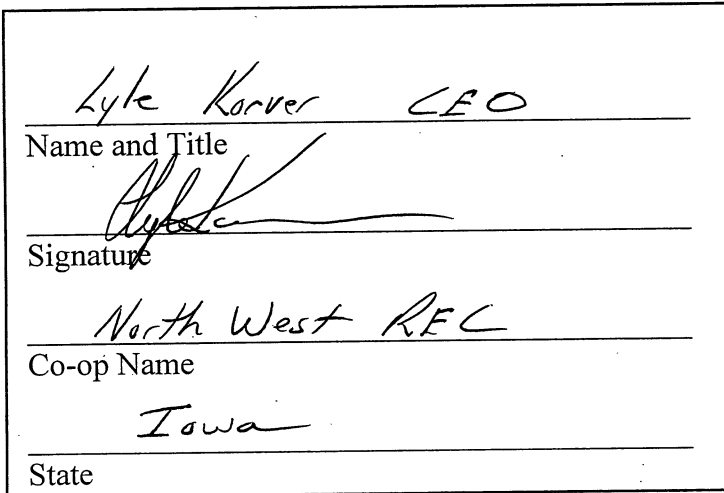 Lyle Korver CEO
Name and Title
Signature
North West REC
Co-op Name
Iowa
State